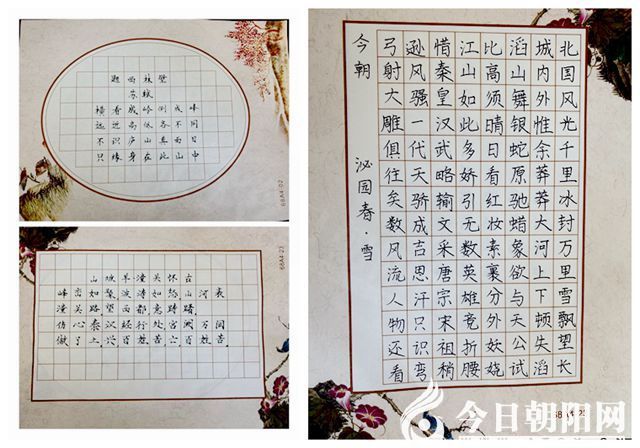 题西林壁
苏轼
横看成岭侧成峰
远近高低各不同
不识庐山真面目
只缘身在此山中
68A4-02
山坡羊·潼关怀古
峰峦如聚波涛如怒山河表
潼关路望西都意踌躇
伤心秦汉经行处宫阙万间
做了土兴百姓苦亡百姓苦
68A4-23
北国风光千里冰封万里雪飘望长
城内外惟余莽莽大河上下顿失滔
滔山舞银蛇原驰蜡象欲与天公试
比高须晴日看红妆素裹分外妖娆
江山如此多娇引无数英雄竞折腰
惜秦皇汉武略输文采唐宗宋祖稍
逊风骚一代天骄成吉思汗只识弯
弓射大雕俱往矣数风流人物还看
今朝 沁园春·雪
68A4-25
今日朝阳网